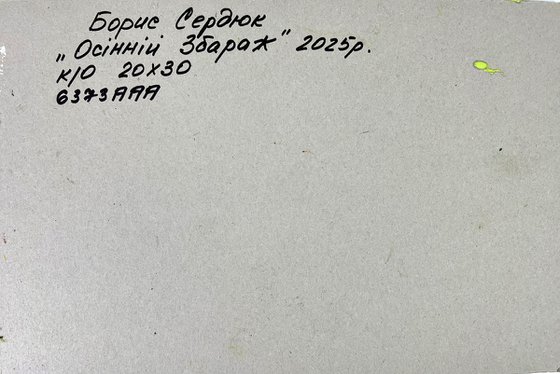 Борис Сердюк
„Осінній Збараж" 2025р.
к/о 20х30
6373ААА